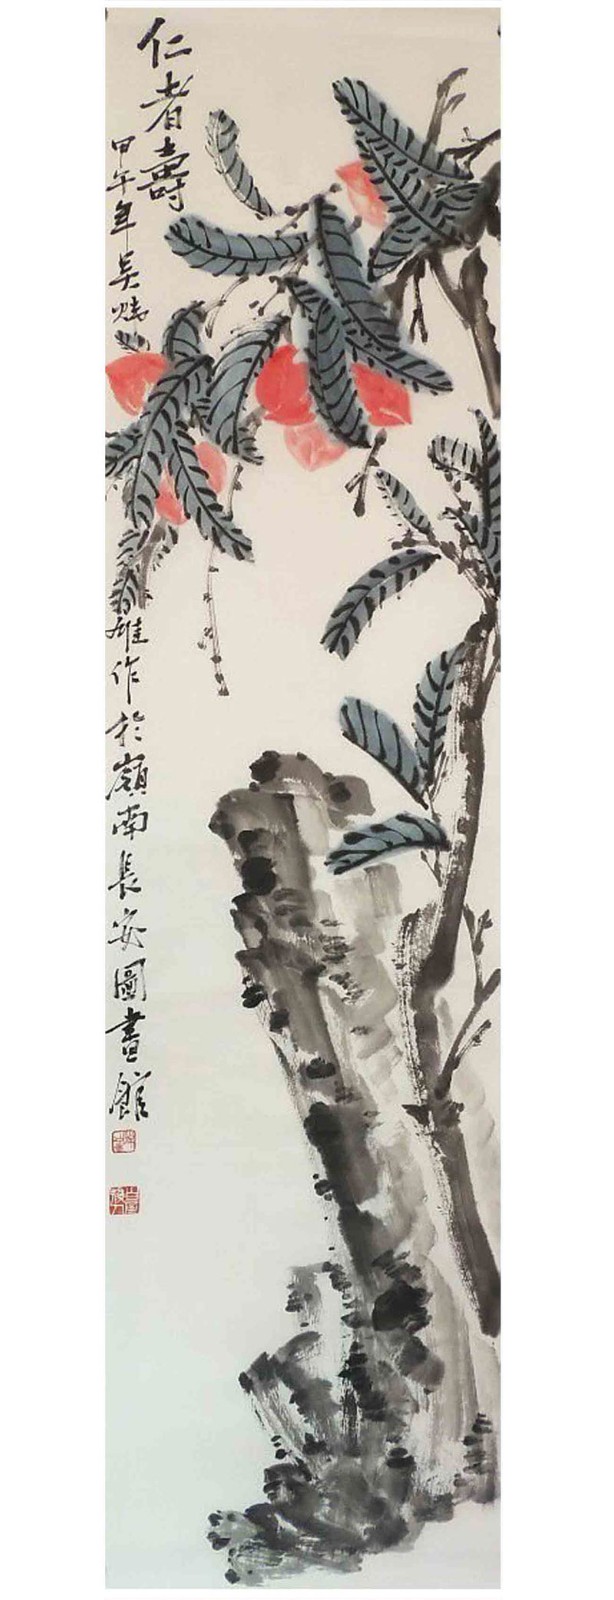 仁者壽
甲午年吴炜
雄作於嶺南長安圖畫館